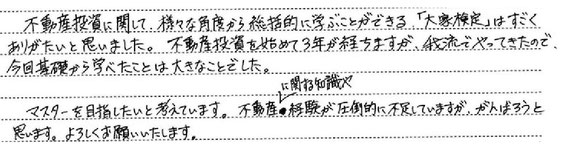 不動産投資に関して、様々な角度から総括的に学ぶことができる「大家検定」はすごく
ありがたいと思いました。不動産投資を始めて3年が経ちますが、我流でやってきたので、
今回基礎から学べたことは大きなことでした。
に関する知識や
マスターを目指したいと考えています。不動産経験が圧倒的に不足していますが、がんばろうと
思います。よろしくお願いいたします。